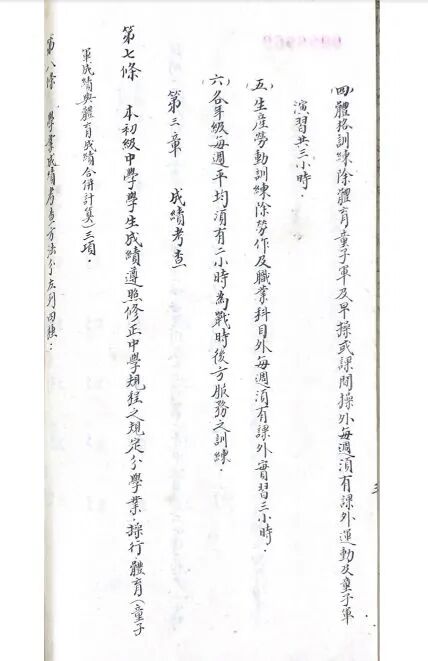 (四)體格訓練除體育童子軍及早操或課間操外每週須有課外運動及童子軍
演習共三小時．
(五)生產勞動訓練除勞作及職業科目外每週須有課外實習三小時．
(六)各年級每週平均須有二小時為戰時後方服務之訓練．
第三章　成績考查
第七條　本初級中學學生成績遵照修正中學規程之規定分學業．操行．體育(童子
軍成績與體育成績合併計算)三項．
第八條　學業成績考查方法分左列四種：
三